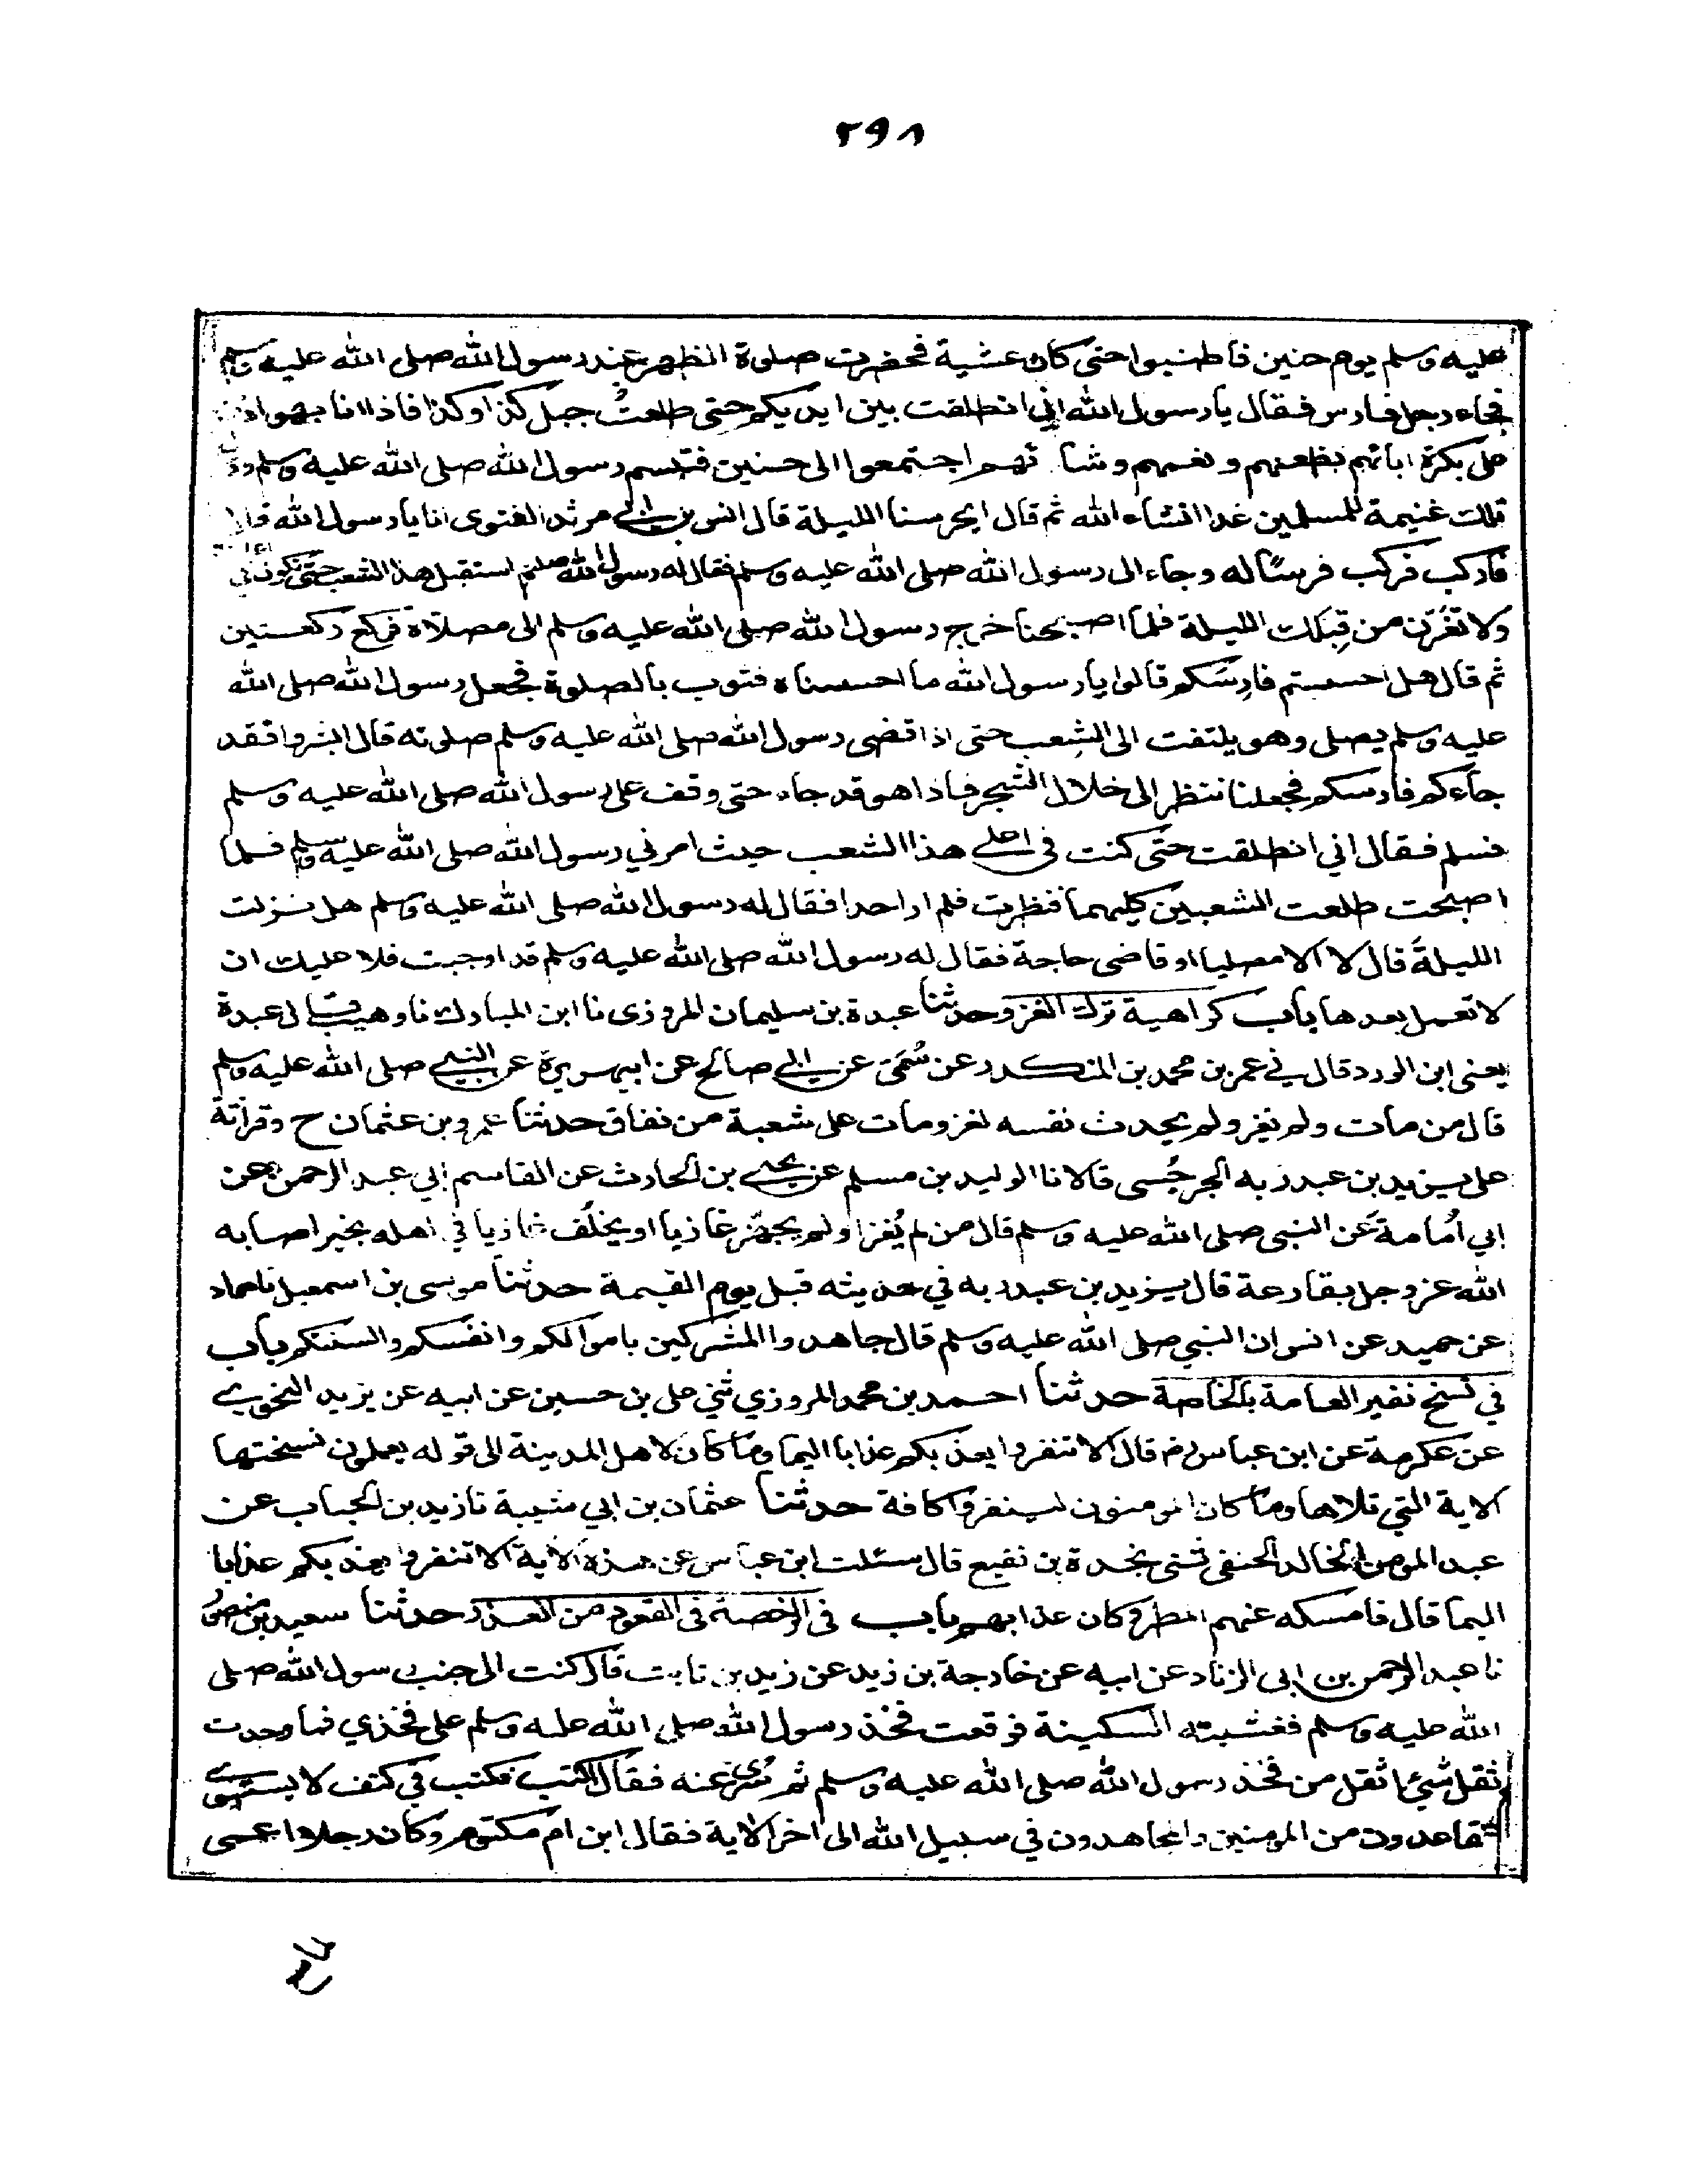 ٢٩٨
عليه وسلم يوم حنين فاطنبوا حتى كان عشية فحضرت صلوة الظهر عند رسول الله صلى الله عليه وسلم
فجاء رجل فارس فقال يا رسول الله اني انطلقت بين ايديكم حتى طلعتُ جبل كذا وكذا فاذا انا بهوازن
على بكرة ابائهم بظعنهم ونعمهم وشائهم اجتمعوا الى حنين فتبسم رسول الله صلى الله عليه وسلم وقال
تلك غنيمة للمسلمين غدا انشاء الله ثم قال من يحرسنا الليلة قال انس بن ابي مرثد الغنوى انا يا رسول الله قال
فاركب فركب فرسًا له وجاء الى رسول الله صلى الله عليه وسلم فقال له رسول الله صلعم استقبل هذا الشعب حتى تكون في اعلاه
ولا نغرّن من قِبَلك الليلة فلما اصبحنا خرج رسول الله صلى الله عليه وسلم الى مصلاه فركع ركعتين
ثم قال هل احسستم فارِسَكم قالوا يا رسول الله ما احسسناه فثوب بالصلوة فجعل رسول الله صلى الله
عليه وسلم يصلى وهو يلتفت الى الشِعب حتى اذا قضى رسول الله صلى الله عليه وسلم صلوته قال ابشروا فقد
جاءكم فارسكم فجعلنا ننتظر الى خلال الشجر فاذا هو قد جاء حتى وقف على رسول الله صلى الله عليه وسلم
فسلم فقال اني انطلقت حتى كنت فى اعلى هذا الشعب حيث امرني رسول الله صلى الله عليه وسلم فلما
اصبحت طلعت الشعبين كليهما فنظرت فلم ار احدا فقال له رسول الله صلى الله عليه وسلم هل نزلت
الليلةَ قال لا الا مصليا او قاضى حاجة فقال له رسول الله صلى الله عليه وسلم قد اوجبت فلا عليك ان
لا تعمل بعدها باب كراهية ترك الغزو حدثنا عبدة بن سليمان المروزى نا ابن المبارك نا وهيب قال عبدة
يعنى ابن الورد قال في عمر بن محمد بن المنكدر عن سُمَىّ عن ابي صالح عن ابي هريرة عن النبي صلى الله عليه وسلم
قال من مات ولم يغز ولم يحدث نفسه لغزو مات على شعبة من نفاق حدثنا عمرو بن عثمان ح وقرأته
على يزيد بن عبد ربه الجرجُسى قالا نا الوليد بن مسلم عن يحيى بن الحارث عن القاسم ابي عبد الرحمن عن
ابي اُمامة عَن النبى صلى الله عليه وسلم قال من لم يُغزا ولم يجهّز غازيا او يخلُف غازيا في اهله بخير اصابه
الله عز وجل بقارعة قال يزيد بن عبد ربه في حديثه قبل يوم القيمة حدثنا موسى بن اسمعيل نا حماد
عن حميد عن انس ان النبي صلى الله عليه وسلم قال جاهدوا المشركين باموالكم وانفسكم والسنتكم باب
في نسخ نفير العامة بالخاصة حدثنا احمد بن محمد المروزي ثني على بن حسين عن ابيه عن يزيد النحوي
عن عكرمة عن ابن عباس رض قال الا تنفروا يعذبكم عذابا اليما وما كان لاهل المدينة الى قوله يعملون نسختها
الاية التي تلاها وما كان المومنون لينفروا كافة حدثنا عثمان بن ابي شيبة نا زيد بن الحباب عن
عبد المومن بن خالد الحنفى ثنى نجدة بن نفيع قال سئلت ابن عباس عن هذه الاية الا تنفروا يعذبكم عذابا
اليما قال فامسكه عنهم المطر وكان عذابهم باب فى الرخصة فى القعود من العذر حدثنا سعيد بن منصور
نا عبد الرحمن بن ابى الزناد عن ابيه عن خارجة بن زيد عن زيد بن ثابت قال كنت الى جنب رسول الله صلى
الله عليه وسلم فغشيته السكينة فوقعت فخذ رسول الله صلى الله عليه وسلم على فخذي فما وجدت
ثقل شيء اثقل من فخذ رسول الله صلى الله عليه وسلم ثم سُرّى عنه فقال اكتب فكتب في كتف لا يستوى
القاعدون من المومنين والمجاهدون في سبيل الله الى اخر الاية فقال ابن ام مكتوم وكان رجلا اعمى